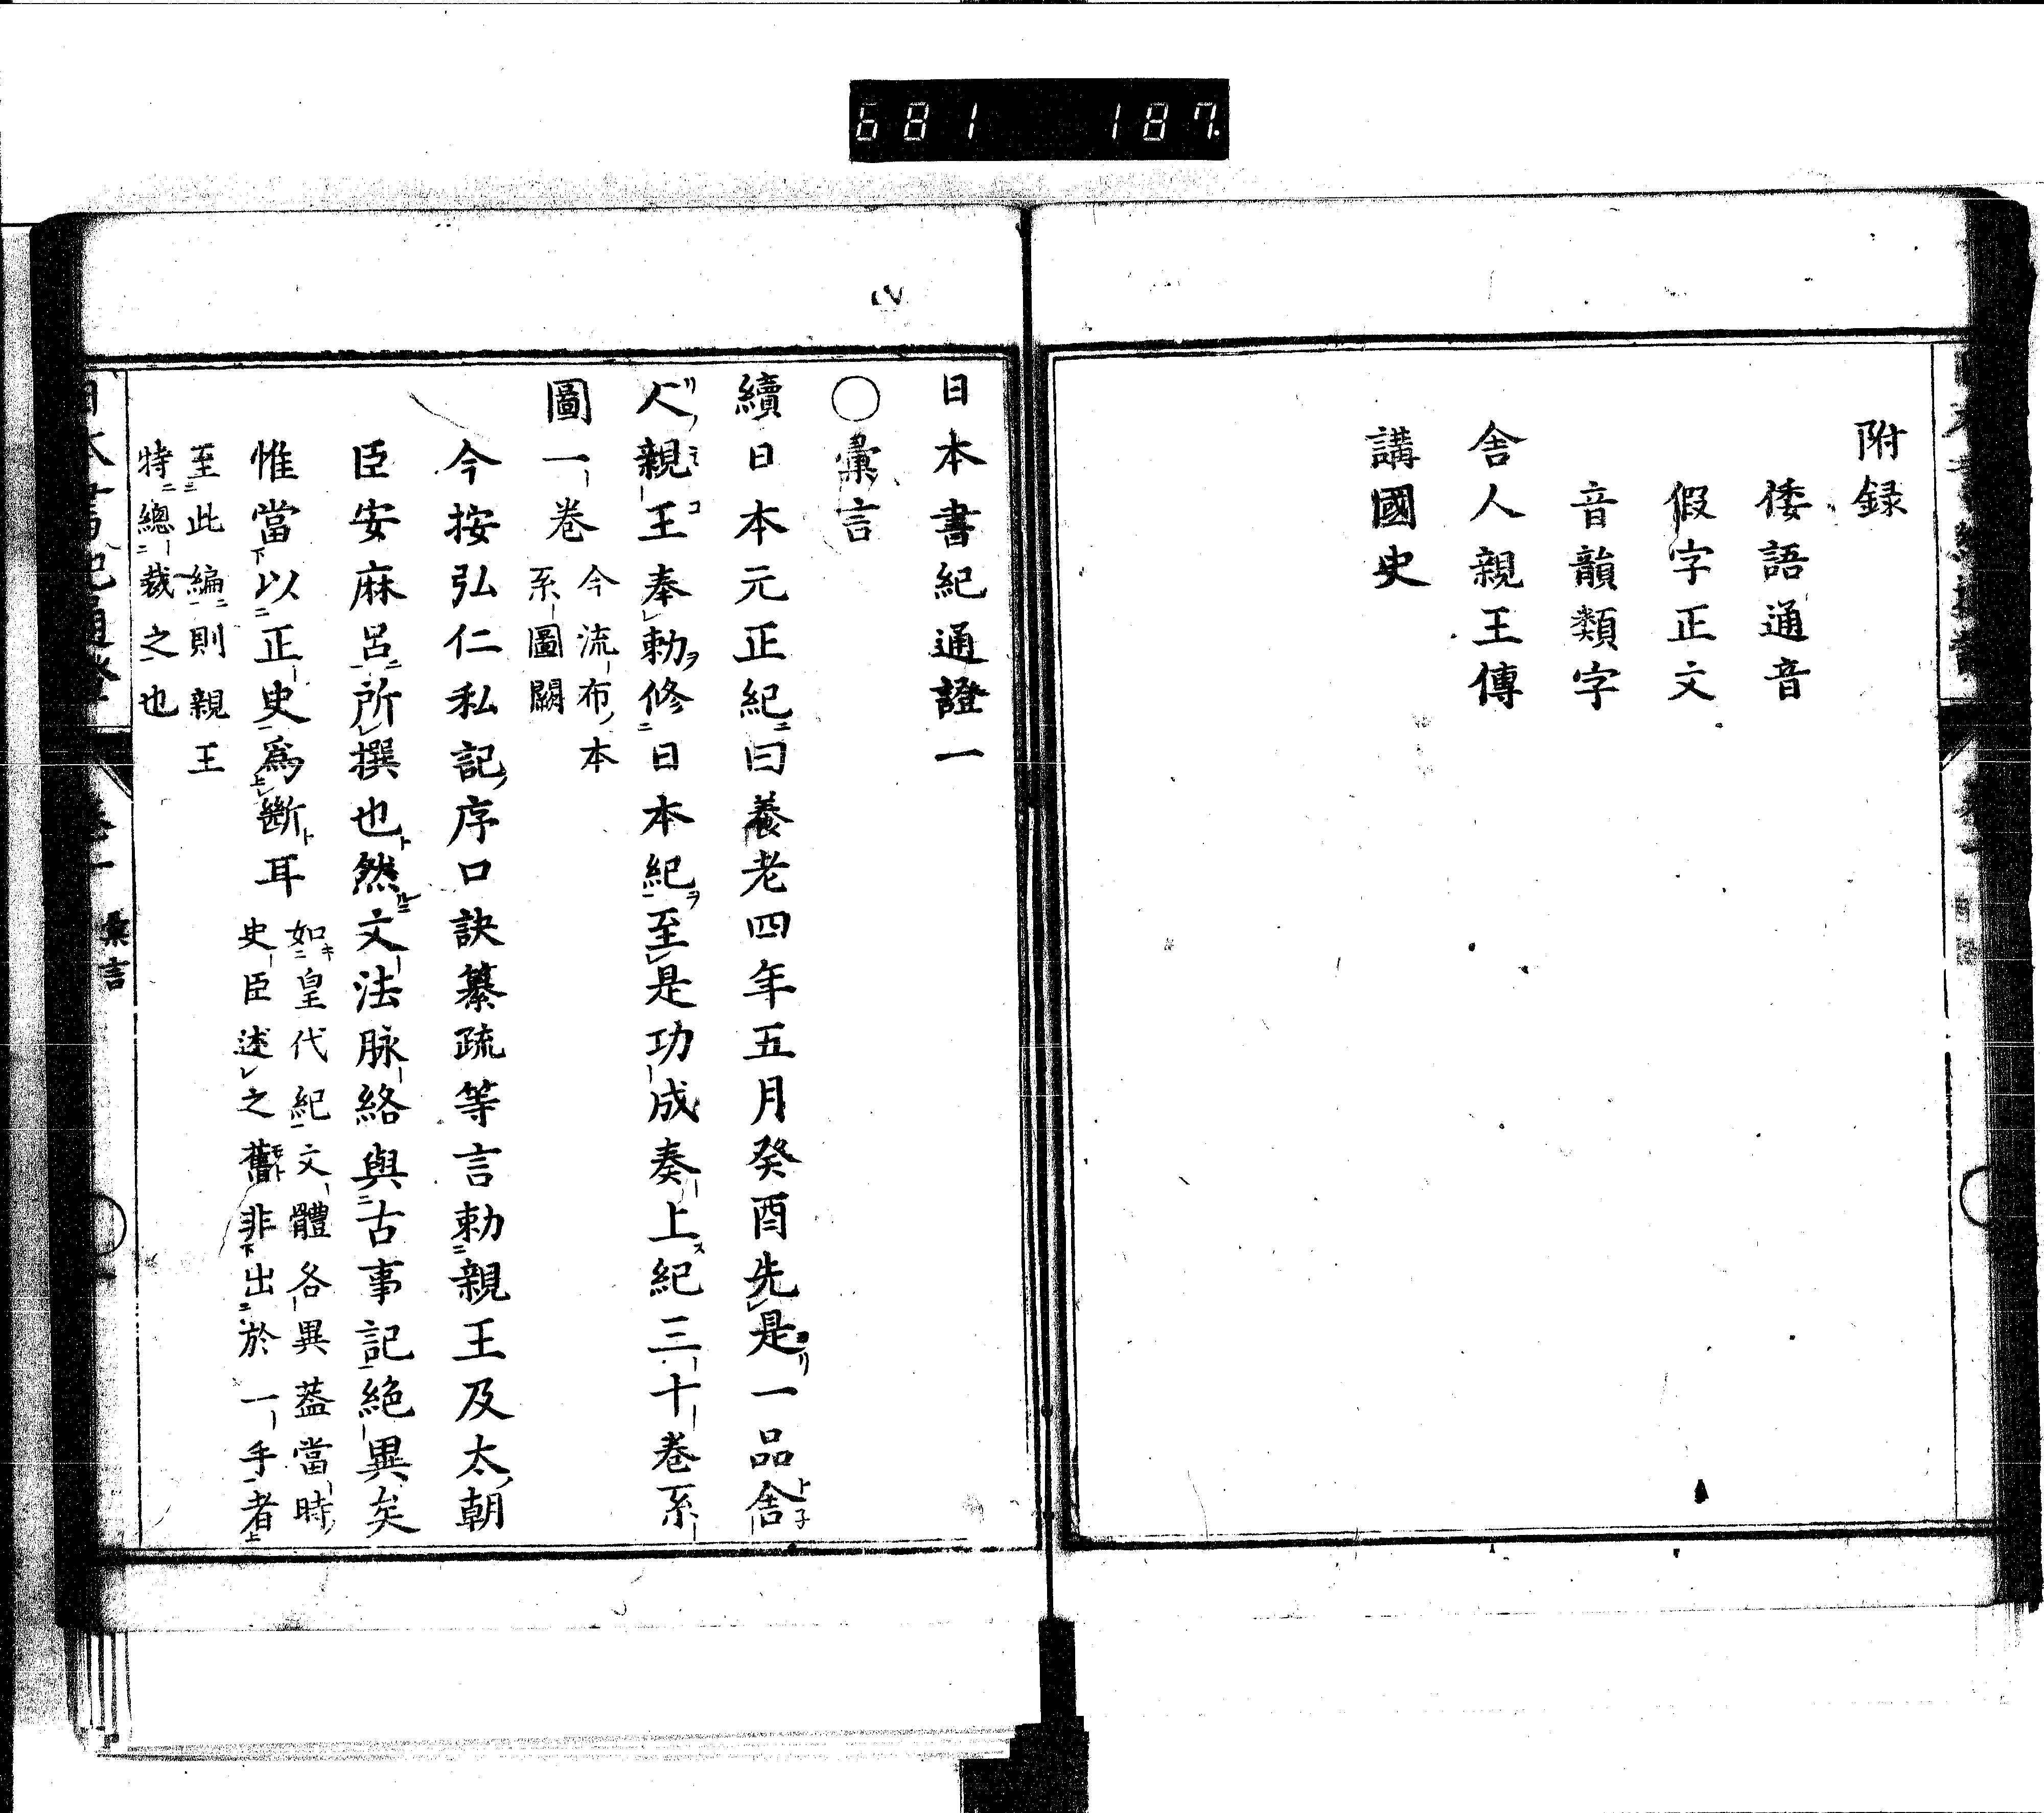 681 187.
附録
倭語通音
假字正文
音韻類字
舎人親王傳
講國史
日本書紀通證一
○彙言
續日本元正紀曰養老四年五月癸酉先是一品舎
人親王奉勅修日本紀至是功成奏上紀三十巻系
圖一巻
今流布本
系圖闕
今按弘仁私記序口訣纂疏等言勅親王及太朝
臣安麻呂所撰也然文法脉絡與古事記絶異矣
惟當以正史爲斷耳
如皇代紀文體各異葢當時
史臣述之舊非出於一手者
至此編則親王
特總裁之也
彙言